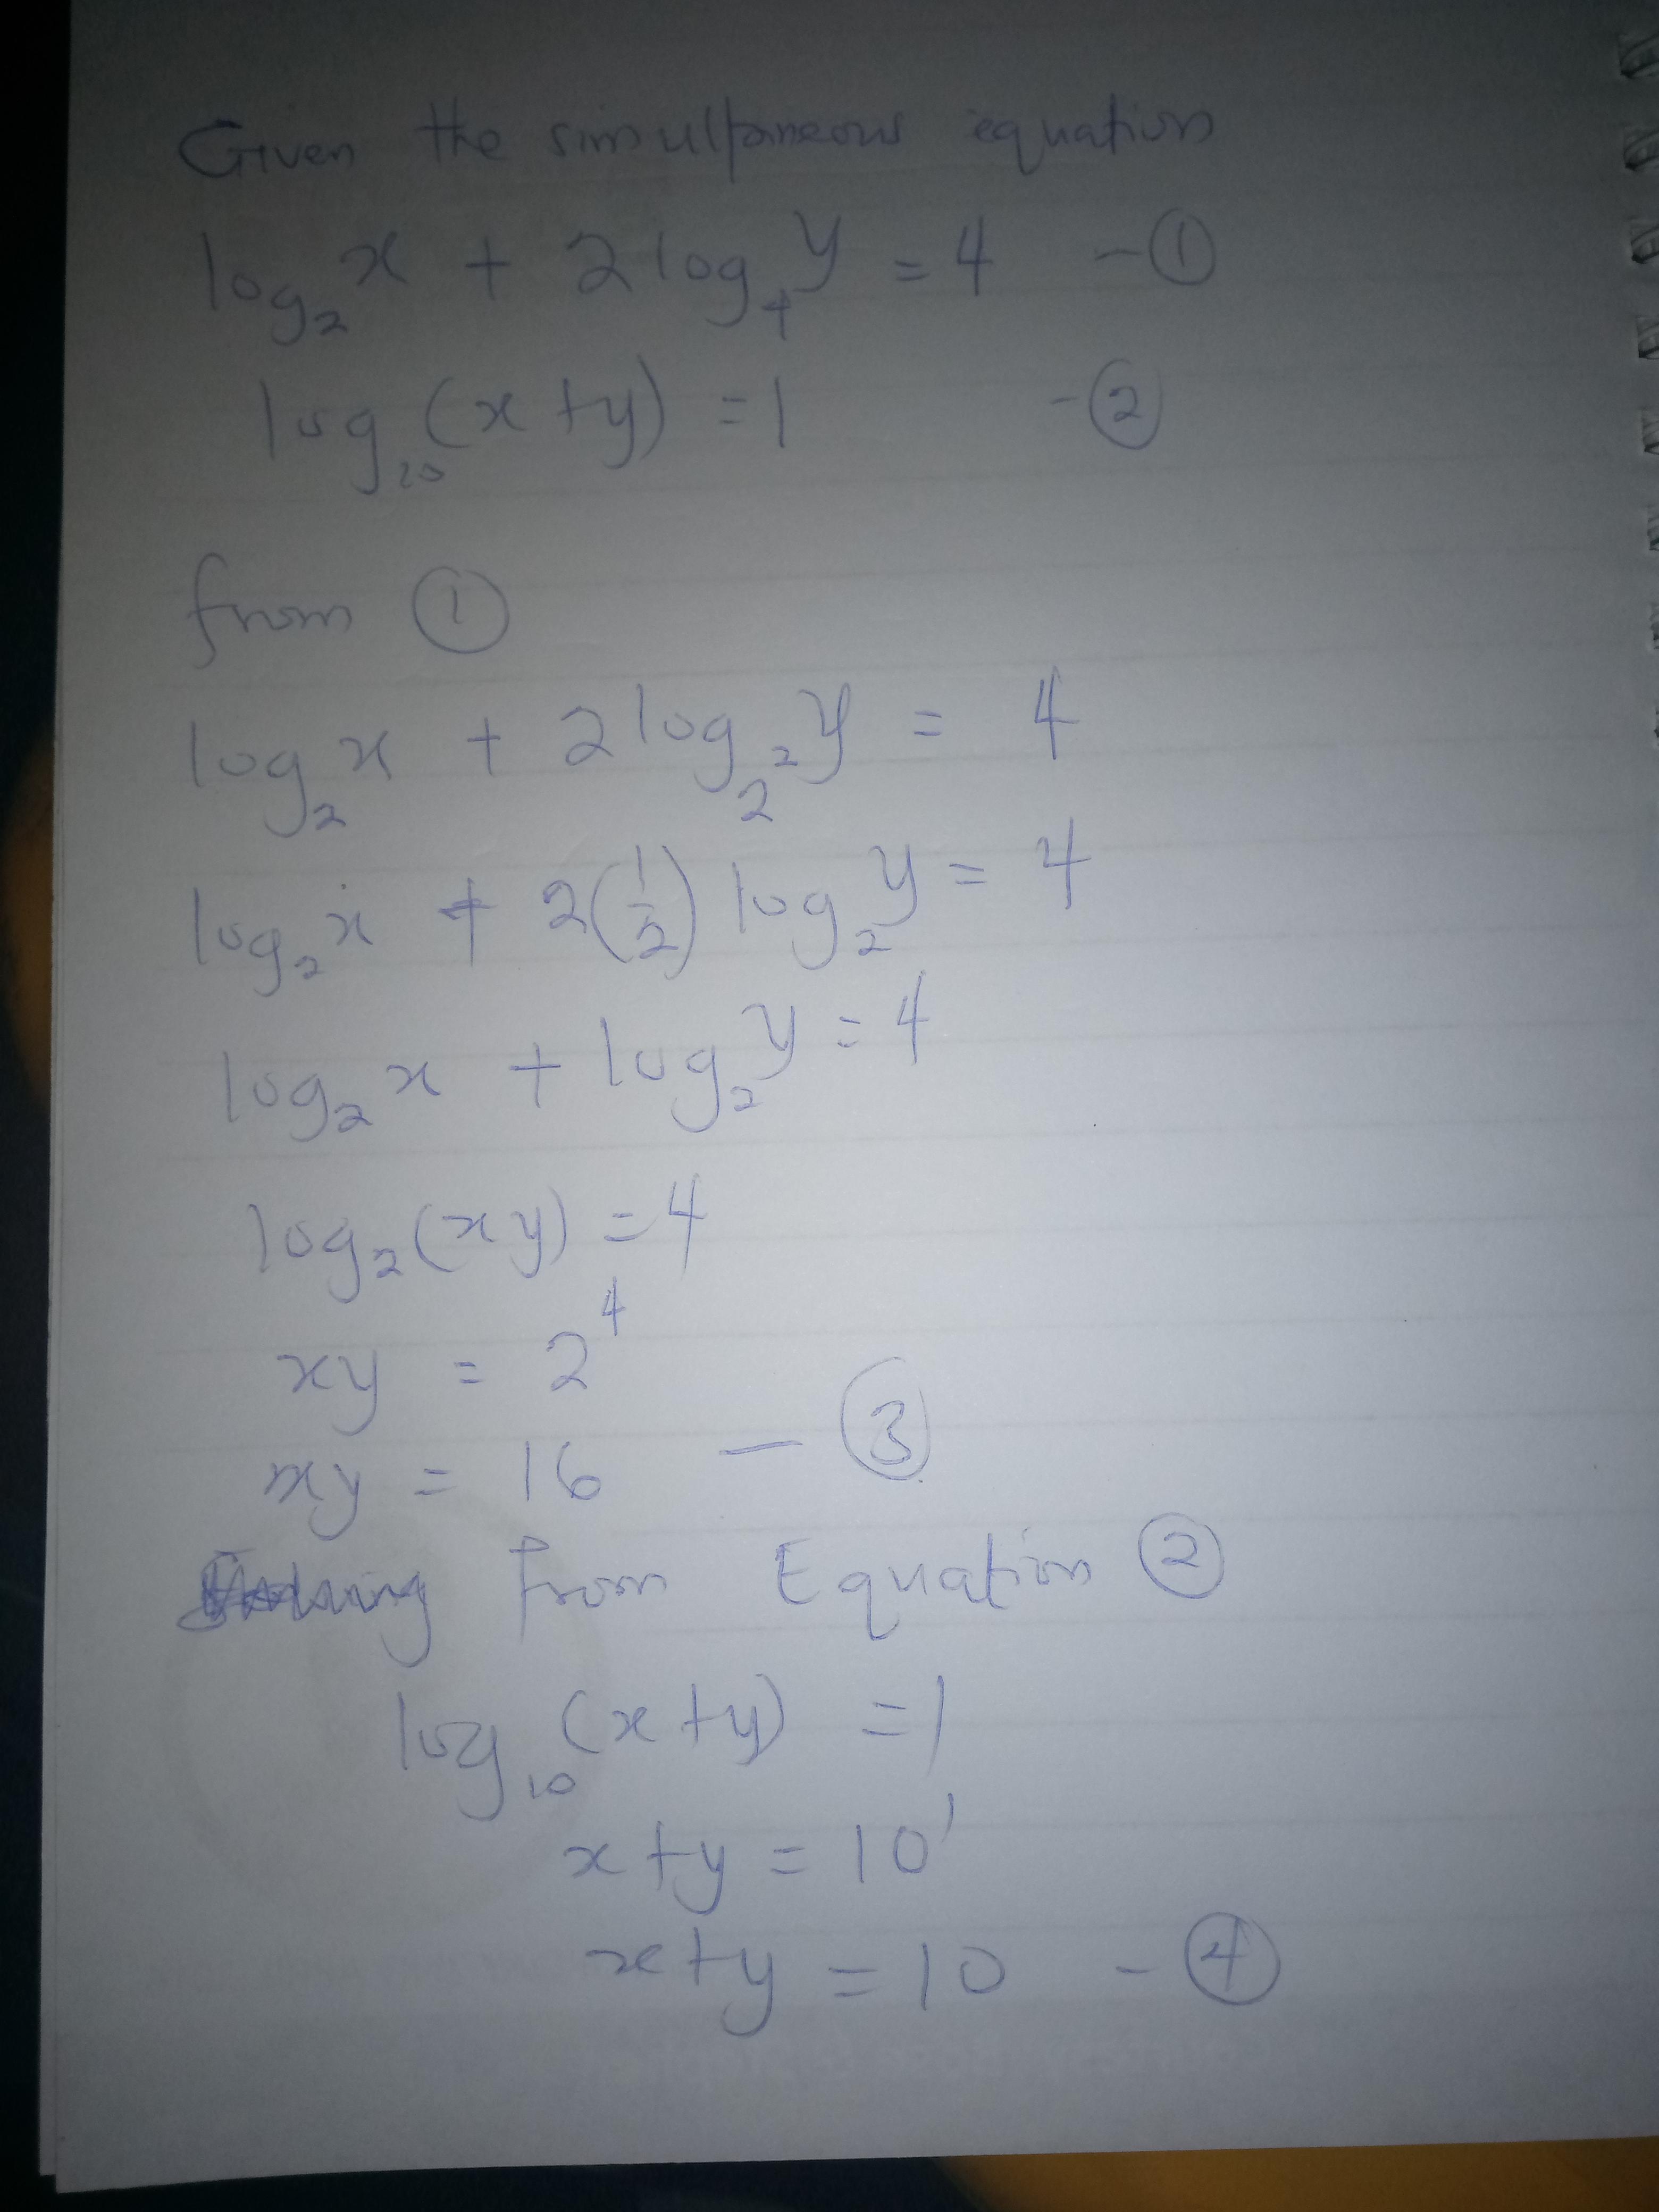 Given the simultaneous equation
log₂x + 2log₄y = 4 - ①
log₁₀(x+y) = 1 - ②
from ①
log₂x + 2log₂²y = 4
log₂x + 2(1/2)log₂y = 4
log₂x + log₂y = 4
log₂(xy) = 4
xy = 2⁴
xy = 16 — ③
from Equation ②
log₁₀(x+y) = 1
x+y = 10¹
x+y = 10 - ④